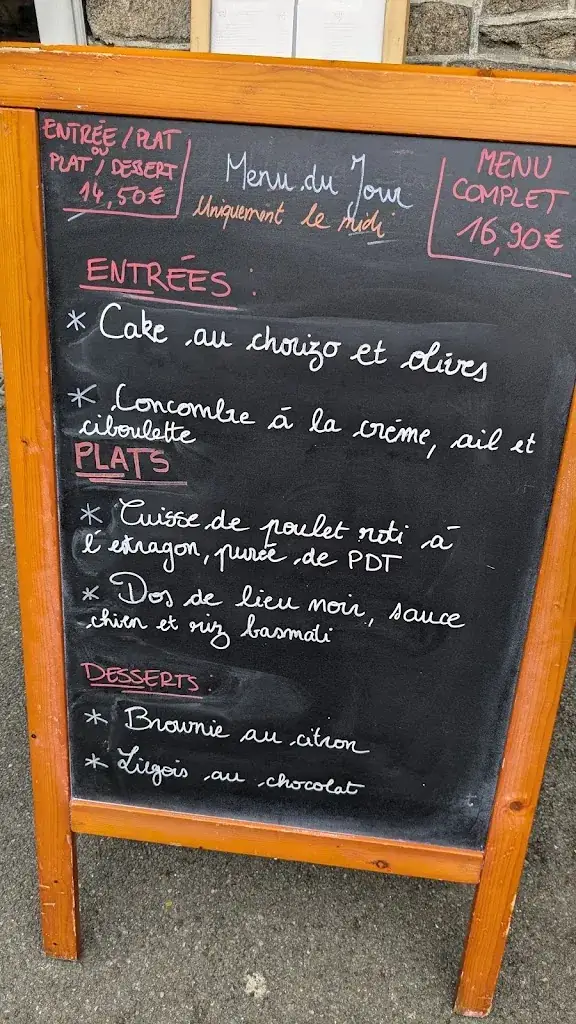 ENTRÉE / PLAT
OU
PLAT / DESSERT
14,50€
Menu du Jour
Uniquement le midi
MENU
COMPLET
16,90€
ENTRÉES :
* Cake au chorizo et olives
* Concombre à la crème, ail et
ciboulette
PLATS
* Cuisse de poulet roti à
l'estragon, purée de PDT
* Dos de lieu noir, sauce
chien et riz basmati
DESSERTS :
* Brownie au citron
* Liégois au chocolat